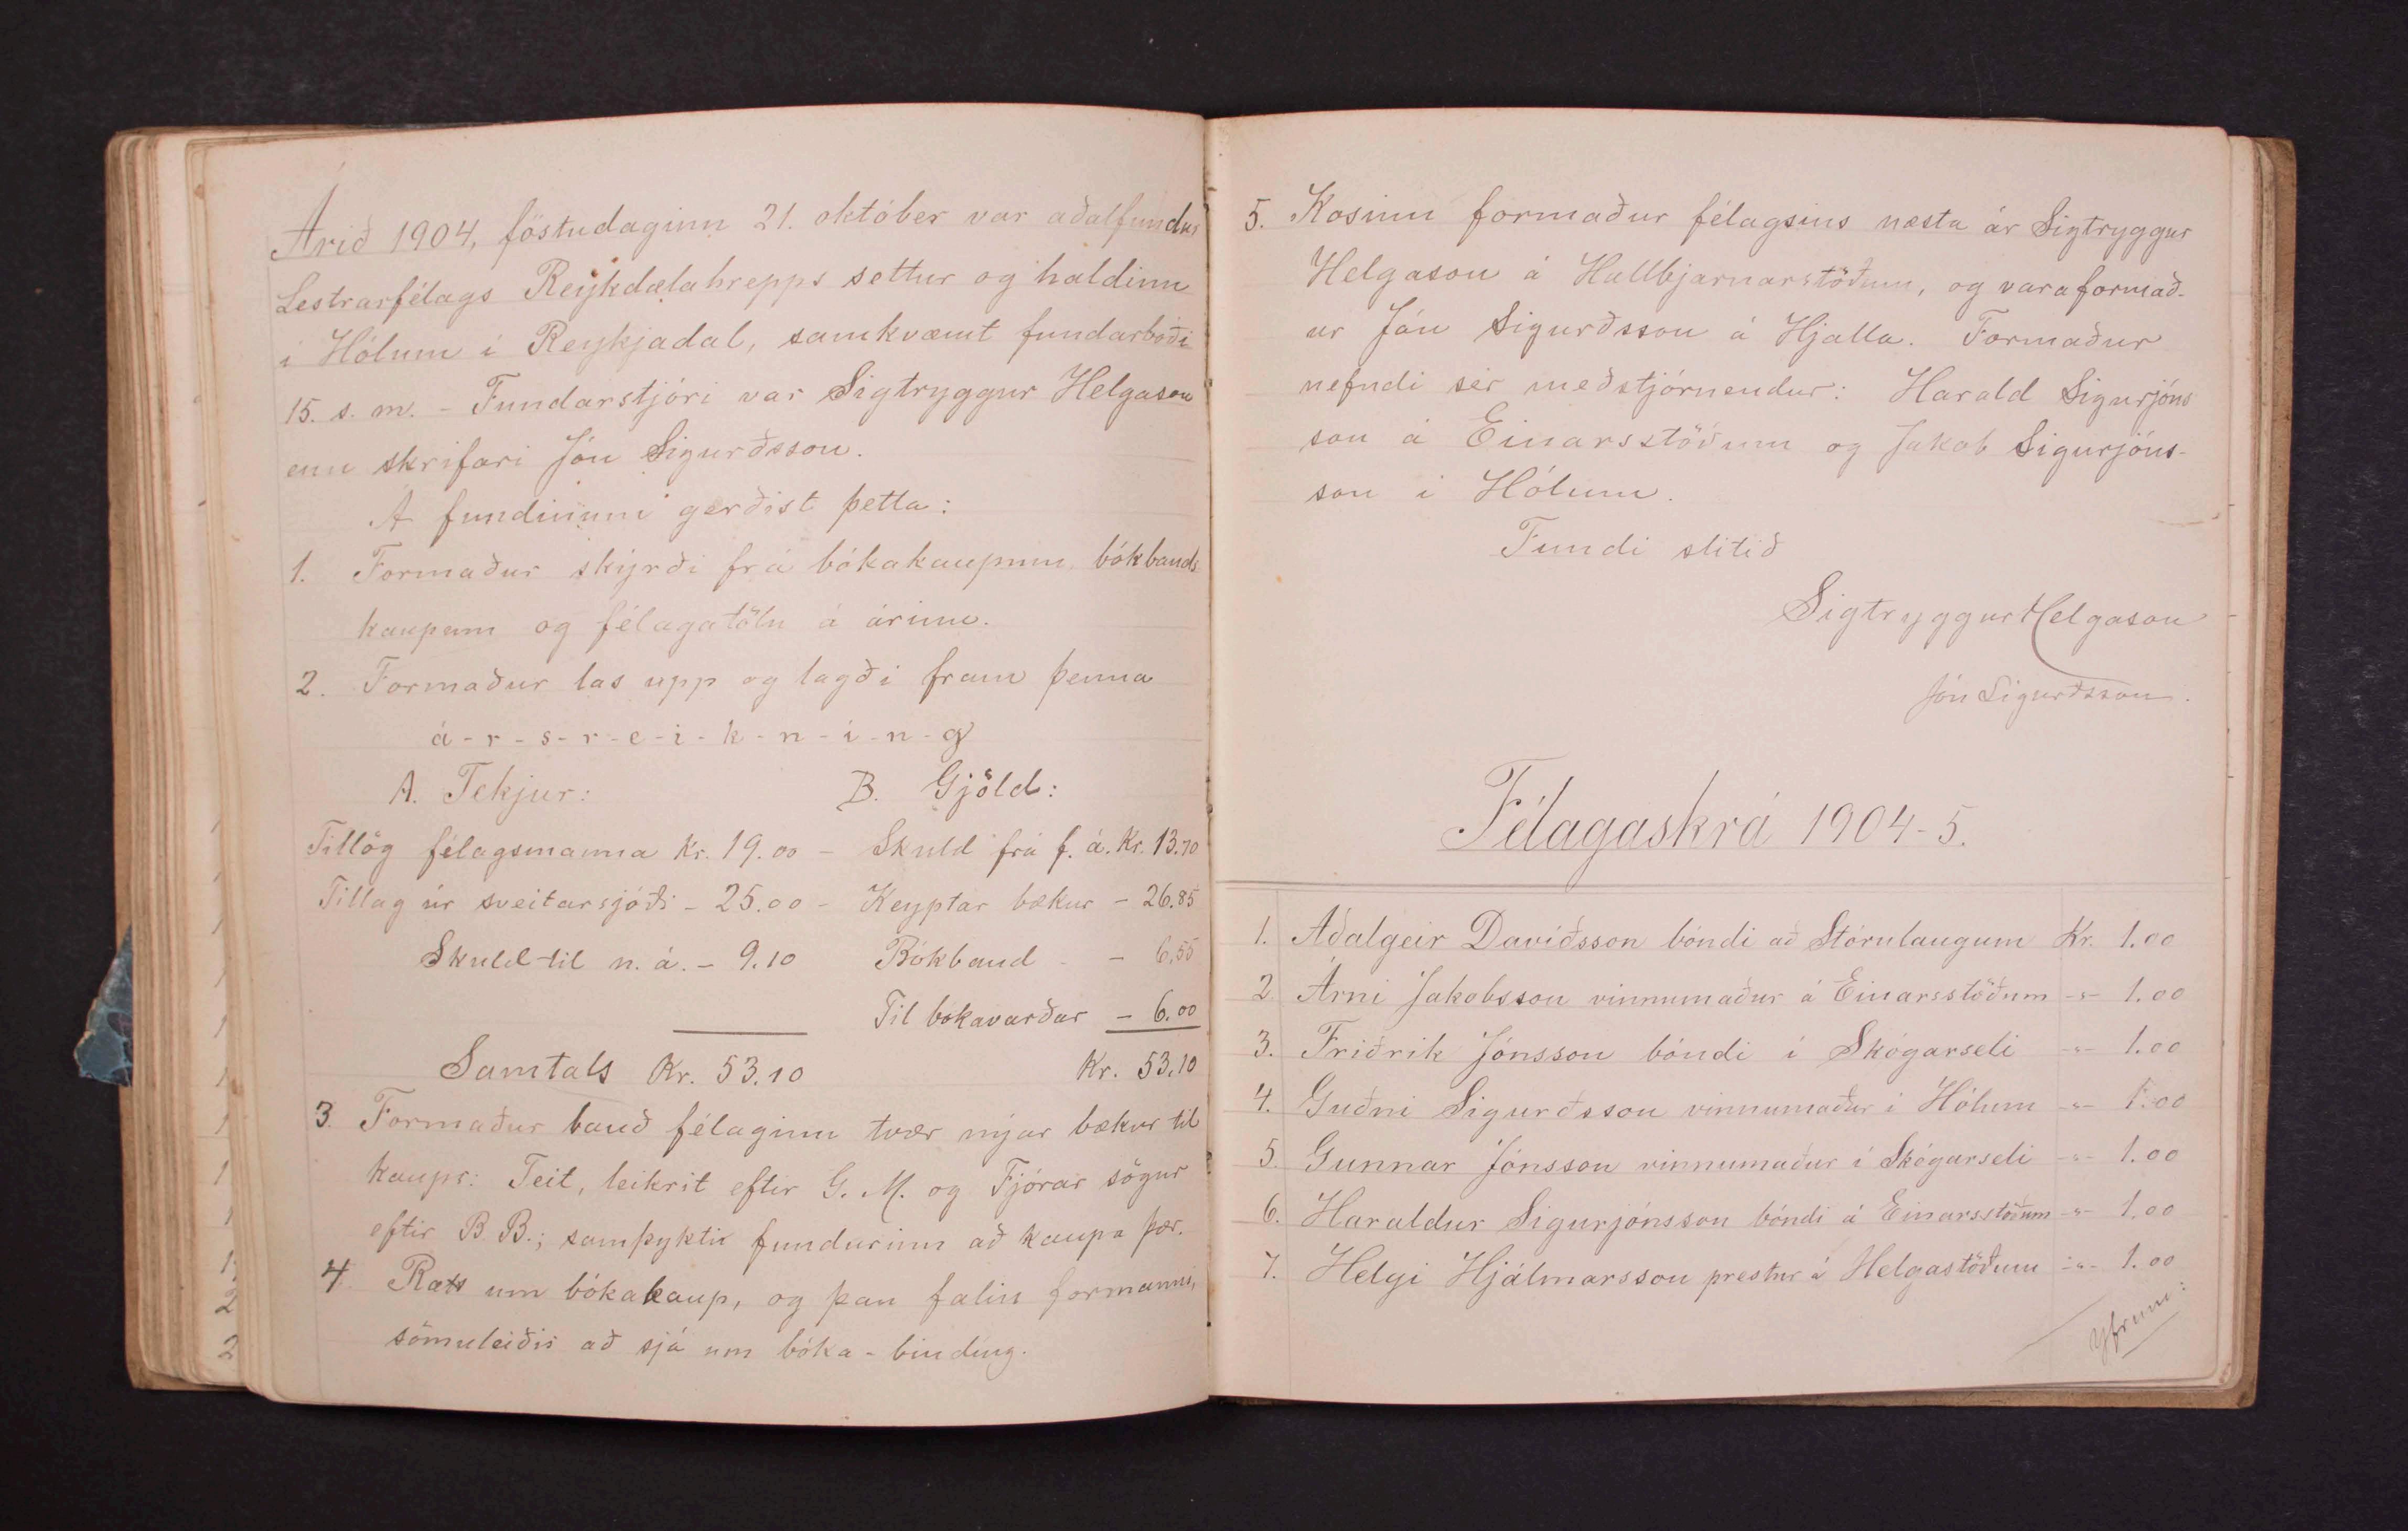 Árið 1904, föstudaginn 21. október var aðalfundur
Lestrarfélags Reykdælahrepps settur og haldinn
í Hólum í Reykjadal, samkvæmt fundarboði
15. s. m. - Fundarstjóri var Sigtryggur Helgason
enn skrifari Jón Sigurðsson.
Á fundinum gerðist þetta:
1. Formaður skýrði frá bókakaupum, bókbands
kaupum og félagatölu á árinu.
2. Formaður las upp og lagði fram þenna
á-r-s-r-e-i-k-n-i-n-g
A. Tekjur: B. Gjöld:
Tillög félagsmanna Kr. 19.00 - Skuld frá f. á. Kr. 13.70
Tillag úr sveitarsjóði - 25.00 - Keyptar bækur - 26.85
Skuld til n. á. - 9.10 Bókband - - 6.55
Til bókavarðar - 6.00
Samtals Kr. 53.10 Kr. 53.10
3. Formaður bauð félaginu tvær nýjar bækur til
kaups: Teit, leikrit eftir G. M. og Fjórar sögur
eftir B. B.; samþykti fundurinn að kaupa þær.
4. Rætt um bókakaup, og þau falin formanni,
sömuleiðis að sjá um bóka-binding.
5. Kosinn formaður félagsins næsta ár Sigtryggur
Helgason á Hallbjarnarstöðum, og varaformað-
ur Jón Sigurðsson á Hjalla. Formaður
nefndi sér meðstjórnendur: Harald Sigurjóns
son á Einarsstöðum og Jakob Sigurjóns-
son í Hólum.
Fundi slitið
Sigtryggur Helgason
Jón Sigurðsson.
Félagaskrá 1904-5.
1. Aðalgeir Davíðsson bóndi að Stórulaugum Kr. 1.00
2. Árni Jakobsson vinnumaður á Einarsstöðum -"- 1.00
3. Friðrik Jónsson bóndi í Skógarseli -"- 1.00
4. Guðni Sigurðsson vinnumaður í Hólum -"- 1.00
5. Gunnar Jónsson vinnumaður í Skógarseli -"- 1.00
6. Haraldur Sigurjónsson bóndi á Einarsstöðum -"- 1.00
7. Helgi Hjálmarsson prestur á Helgastöðum -"- 1.00
Yfrum: